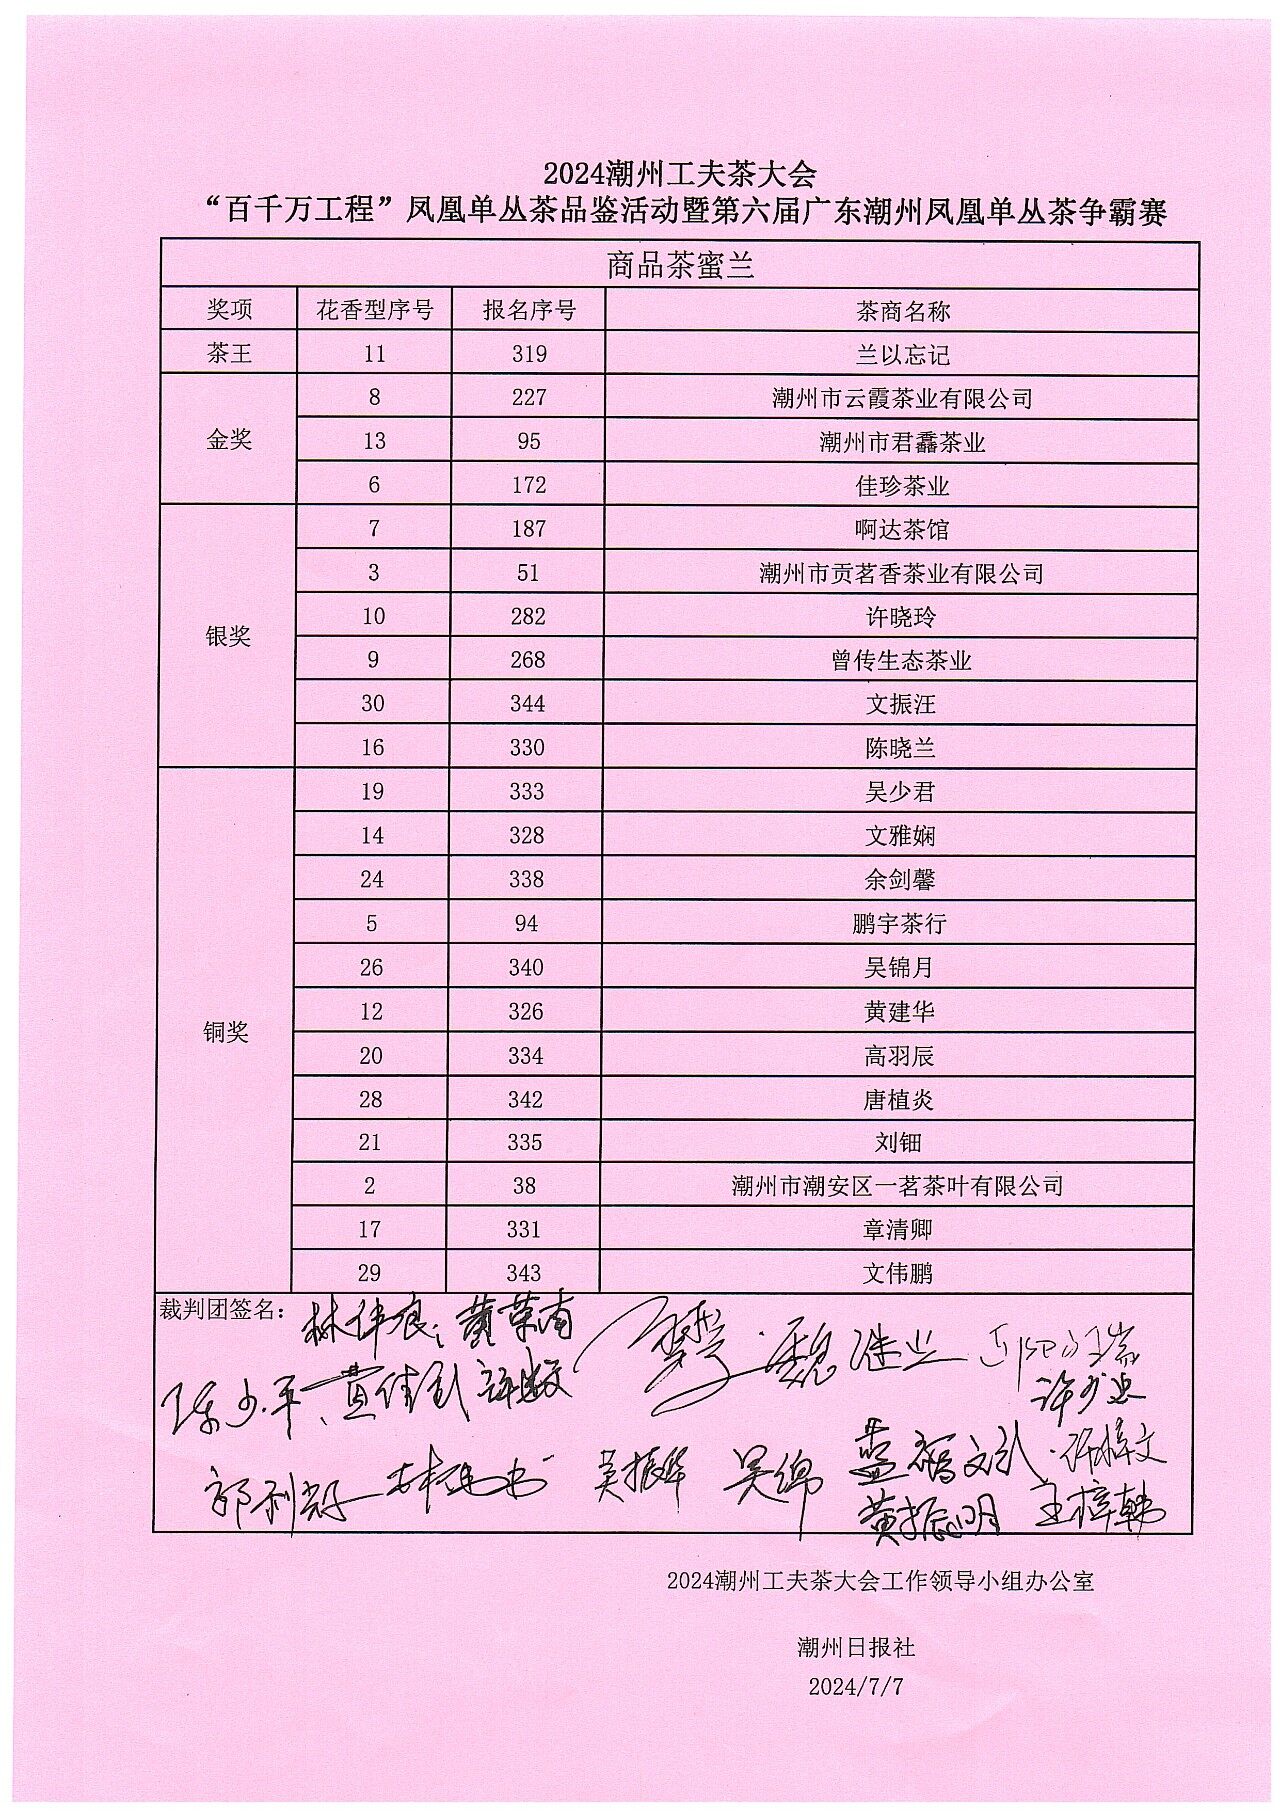 2024潮州工夫茶大会
“百千万工程”凤凰单丛茶品鉴活动暨第六届广东潮州凤凰单丛茶争霸赛
商品茶蜜兰
奖项 花香型序号 报名序号 茶商名称
茶王 11 319 兰以忘记
金奖 8 227 潮州市云霞茶业有限公司
13 95 潮州市君馫茶业
6 172 佳珍茶业
银奖 7 187 啊达茶馆
3 51 潮州市贡茗香茶业有限公司
10 282 许晓玲
9 268 曾传生态茶业
30 344 文振汪
16 330 陈晓兰
铜奖 19 333 吴少君
14 328 文雅娴
24 338 余剑馨
5 94 鹏宇茶行
26 340 吴锦月
12 326 黄建华
20 334 高羽辰
28 342 唐植炎
21 335 刘钿
2 38 潮州市潮安区一茗茶叶有限公司
17 331 章清卿
29 343 文伟鹏
裁判团签名： 林伟良 黄荣南
陈少平
吴振华 吴绵
黄振明
2024潮州工夫茶大会工作领导小组办公室
潮州日报社
2024/7/7